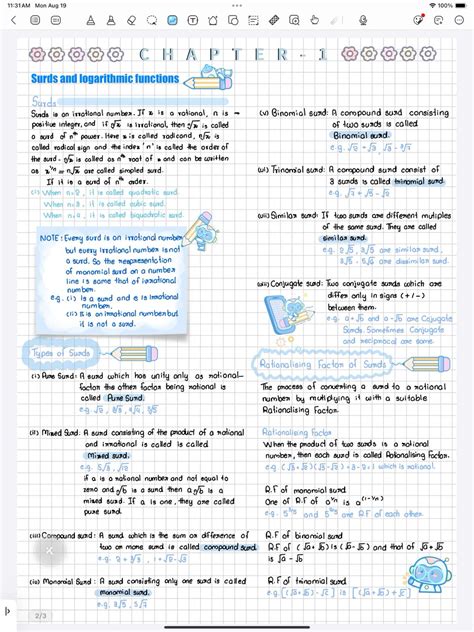 11:31AM Mon Aug 19
100%
CHAPTER - 1
Surds and logarithmic functions
Surds
Surds is an irrational number. If x is a rational, n is
positive integer, and if ⁿ√x is irrational, then ⁿ√x is called
a surd of nᵗʰ power. Here x is called radicand, ⁿ√x is called
radical sign and the index 'n' is called the order of
the surd. ⁿ√x is called as nᵗʰ root of x and can be written
as x^(1/n) = ⁿ√x are called simple surd.
If it is a surd of nᵗʰ order.
(i) When n=2, it is called quadratic surd.
When n=3, it is called cubic surd.
When n=4, it is called biquadratic surd.
NOTE: Every surd is an irrational number
but every irrational number is not
a surd. So the respresentation
of monomial surd on a number
line is same that of irrational
number.
e.g. (i) is a surd and is irrational
number.
(ii) is an irrational number but
it is not a surd.
Types of Surds
(i) Pure Surd: A surd which has unity only as rational
factor the other factor being rational is
called Pure Surd.
(ii) Mixed Surd: A surd consisting of the product of a rational
and irrational is called is called
Mixed surd.
e.g. 5√3, √12
if a is a rational number and not equal to
zero and ⁿ√b is a surd then a ⁿ√b is a
mixed surd. If a is one, they are called
pure surd.
(iii) Compound surd: A surd which is the sum or difference of
two or more surd is called compound surd.
(iv) Monomial Surd: A surd consisting only one surd is called
monomial surd.
2/3
(v) Binomial surd: A compound surd consisting
of two surds is called
Binomial surd.
(vi) Trinomial surd: A compound surd consist of
3 surds is called trinomial surd.
e.g. √7 + √5 - √2
(vii) Similar surd: If two surds are different multiples
of the same surd. They are called
similar surd.
e.g. 2√5, 3√5 are similar surd,
are dissimilar surd.
(viii) Conjugate surd: Two conjugate surds which are
differ only in signs (+/-)
between them.
e.g. a+√b and a-√b are Conjugate
Surds. Sometimes Conjugate
and reciprocal are same.
Rationalising Factor of Surds
The process of converting a surd to a rational
number by multiplying it with a suitable
Rationalising Factor.
Rationalising Factor
When the product of two surds is a rational
number, then each surd is called Rationalising Factor.
e.g. (√3+√2)(√3-√2) = 3-2 = 1 which is rational.
R.F of monomial surd
One of R.F of a^(1/n) is a^(1-1/n)
and are R.F of each other.
R.F of binomial surd
R.F of (√a+√b) is (√a-√b) and that of √a+√b
is √a-√b
R.F of trinomial surd
e.g. [(√a+√b)-√c] is [(√a+√b)+√c]